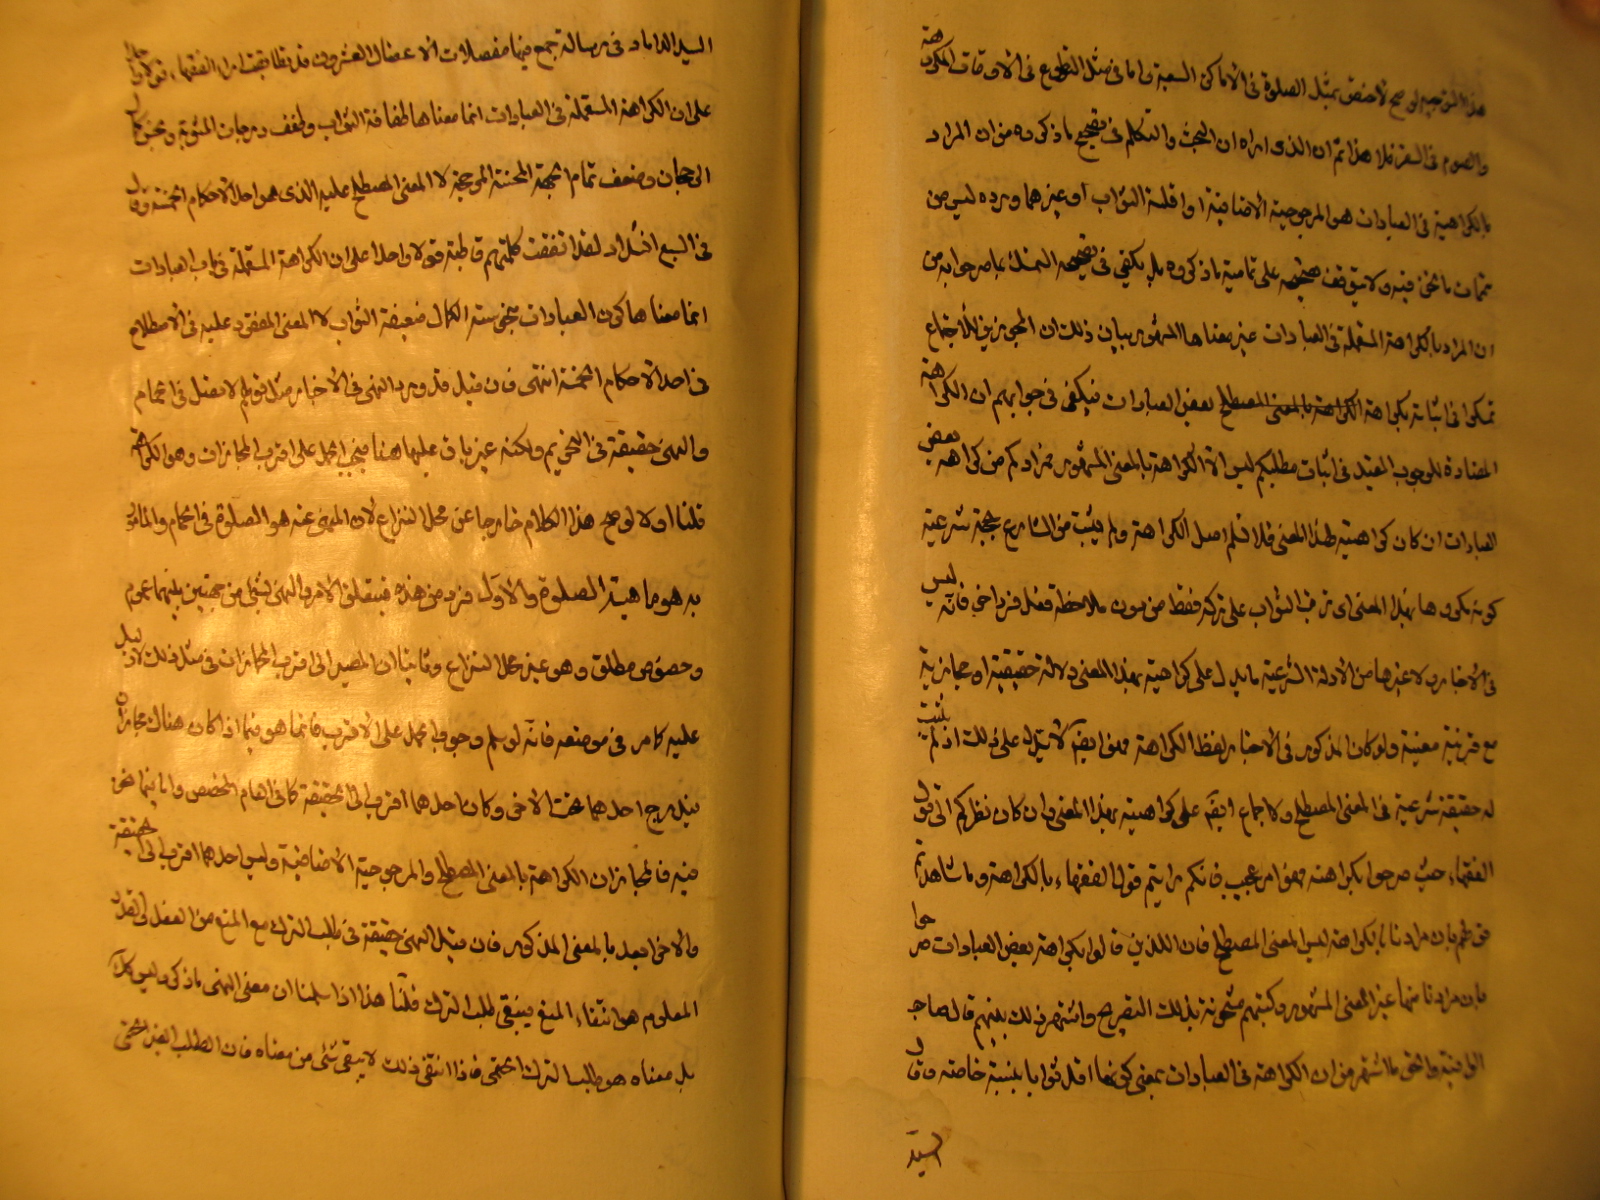 هذا التوجيه لو صح لاختص بمثل الصلوة في الأماكن السبعة واما في مثل التطوع في الاوقات المكروهة
والصوم في السفر فلا هذا ثم ان الذي اراه ان البحث والتكلم في تصحيح ما ذكروه من ان المراد
بالكراهية في العبادات هو المرجوحية الاضافية او اقلية الثواب او غيرهما ورده ليس من
متممات ما نحن فيه ولا يتوقف صحته على تمامية ما ذكروه بل يكفي في تصحيحه التمسك بما صرحوا به من
ان المراد بالكراهة المستعملة في العبادات غير معناها المشهور بيان ذلك ان المجوزين للاجتماع
تمسكوا في اثباته بكراهة الكراهة بالمعنى المصطلح لبعض العبادات فيكفي في جوابهم ان الكراهة
المضادة للوجوب المفيد في اثبات مطلبكم ليس الا الكراهة بالمعنى المشهور فمرادكم من كراهة بعض
العبادات ان كان كراهيته بهذا المعنى فلا نسلم اصل الكراهة ولم يثبت من الشارع بحجة شرعية
كونه مكروها بهذا المعنى اي ترتب الثواب على تركه فقط من دون ملاحظة فعل فرد اخر فانه ليس
في الأخبار ولا غيرها من الأدلة الشرعية ما يدل على كراهيته بهذا المعنى دلالة حقيقية او مجازية
مع قرينة معينة ولو كان المذكور في الأخبار لفظ الكراهة فهو ايضا لا يدل على ذلك اذ لم يثبت
له حقيقة شرعية في المعنى المصطلح ولا اجماع ايضا على كراهيته بهذا المعنى وان كان نظركم الى قول
الفقهاء حيث صرحوا بكراهته فهو امر عجيب فانكم رايتم قول الفقهاء بالكراهة وما شاهدتم
قولهم بان مرادنا بالكراهة ليس المعنى المصطلح فان الذين قالوا بكراهة بعض العبادات صرحوا
بان مرادنا منها غير المعنى المشهور وكتبهم مشحونة بذلك التصريح واشتهر ذلك بينهم قال صاحب
الوافية والحق ما اشتهر من ان الكراهة في العبادات بمعنى كونها اقل ثوابا بنسبة خاصة وقال
السيد
السيد الداماد في رسالة جمع فيها معضلات الاعضال العشرون قد تطابقت من الفقهاء قولا واحدا
على ان الكراهة المستعملة في العبادات انما معناها طفافة الثواب وطفف درجات المثوبة
الرجحان وضعف تمام الجهة المحسنة المرجحة لا المعنى المصطلح عليه الذي هو احد الأحكام الخمسة وقال
في السبع الشداد لقد اتفقت كلمتهم قاطبة قولا واحدا على ان الكراهة المستعملة في باب العبادات
انما معناها كون العبادات ضعيفة الثواب لا المعنى المعقود عليه في الاصطلاح
في احد الأحكام الخمسة انتهى فان قيل قد ورد النهي في الأخبار مثل قولهم لا تصل في الحمام
والنهي حقيقة في التحريم ولكنه غير باق عليها هنا فيجب الحمل على اقرب المجازات وهو الكراهة
قلنا اولا لو صح هذا الكلام خارجا عن محل النزاع لان المنهي عنه هو الصلوة في الحمام والمامور
به هو ماهية الصلوة والأول فرد من هذه فيتعلق الأمر والنهي بشيئ من جهتين بينهما عموم
وخصوص مطلق وهو غير محل النزاع وثانيا ان المصير الى اقرب المجازات في مثل ذلك لا دليل
عليه كما مر في موضعه فانه لو سلم وجوب الحمل على الاقرب فانما هو فيما اذا كان هناك مجازان
يندرج احدهما تحت الأخر وكان احدهما اقرب الى الحقيقة كما في العام المخصص واما فيما نحن
فيه فالمجازان الكراهة بالمعنى المصطلح والمرجوحية الأضافية وليس احدهما اقرب الى الحقيقة
والأخر ابعد بالمعنى المذكور فان قيل النهي حقيقة في طلب الترك مع المنع من الفعل والقدر
المعلوم هو انتفاء المنع فيبقى طلب الترك قلنا هذا اذا سلمنا ان معنى النهي ما ذكر وليس كذلك
بل معناه هو طلب الترك الحتمي فاذا انتفى ذلك لا يبقى شئ من معناه فان الطلب الغير الحتمي